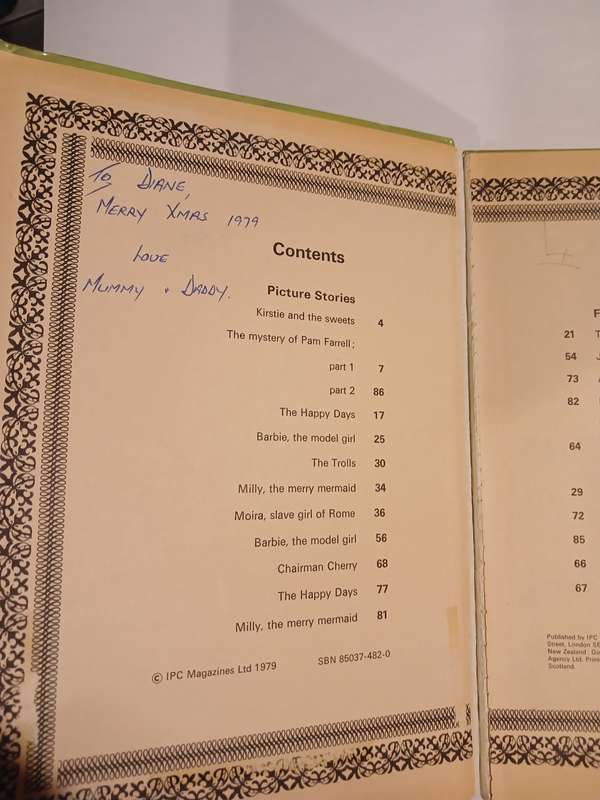 To Diane,
Merry Xmas 1979
Love
Mummy & Daddy.
Contents
Picture Stories
Kirstie and the sweets 4
The mystery of Pam Farrell;
part 1 7
part 2 86
The Happy Days 17
Barbie, the model girl 25
The Trolls 30
Milly, the merry mermaid 34
Moira, slave girl of Rome 36
Barbie, the model girl 56
Chairman Cherry 68
The Happy Days 77
Milly, the merry mermaid 81
© IPC Magazines Ltd 1979 SBN 85037-482-0
F
21 T
54 J
73
82
64
29
72
85
66
67
Published by IPC
Street, London SE
New Zealand: Go
Agency Ltd. Prin
Scotland.